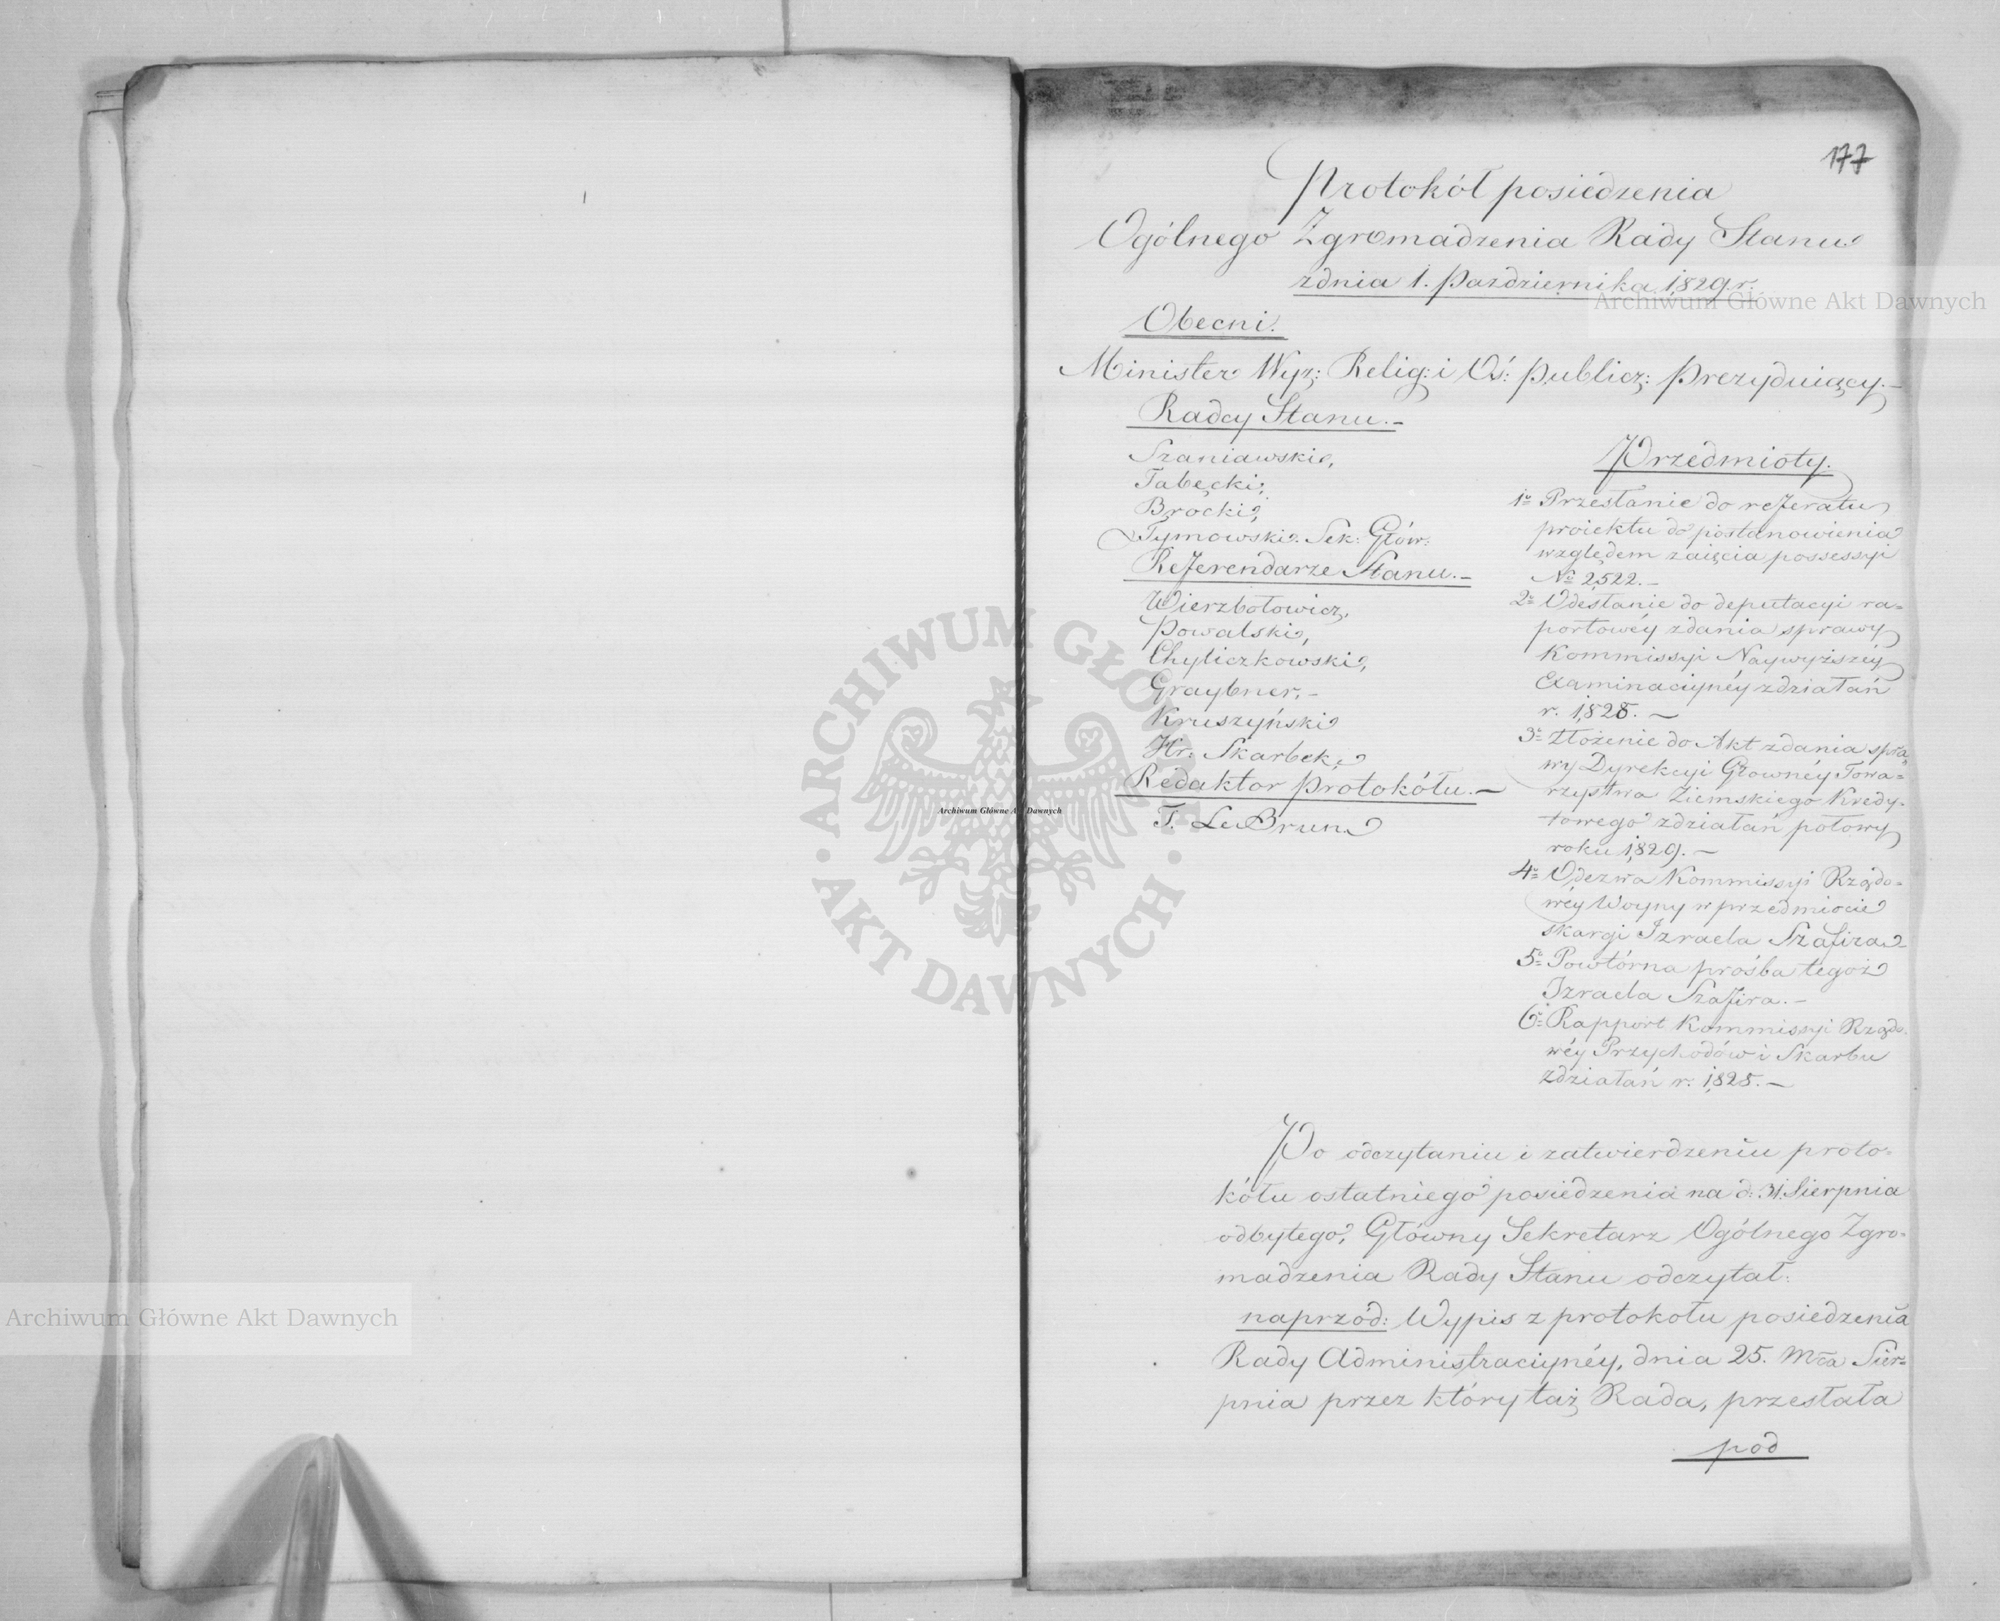 177
Protokół posiedzenia
Ogólnego Zgromadzenia Rady Stanu
zdnia 1. Pazdziernika 1829 r.
Obecni.
Minister Wyz: Relig: i Oś: Publicz: Prezyduiący.-
Radcy Stanu.-
Szaniawski,
Tabęcki,
Brocki,
Tymowski. Sek: Głów:
Referendarze Stanu.-
Wierzbołowicz,
Powalski,
Chyliczkowski,
Graybner,-
Kruszyński
Hr: Skarbek,
Redaktor Protokółu.-
T. Le Brun
Przedmioty.
1o Przesłanie do referatu
proiektu do postanowienia
względem zaięcia possessyi
No 2522.-
2o Odesłanie do deputacyi ra-
portowéy zdania sprawy
Kommissyi Naywyższéy
Examinacyinéy zdziałań
r. 1828.-
3o Złożenie do Akt zdania spra
wy Dyrekcyi Głownéy Towa-
rzystwa Ziemskiego Kredy-
towego zdziałań połowy
roku 1829.-
4o Odezwa Kommissyi Rządo-
wéy Woyny w przedmiocie
skargi Izraela Szafira-
5o Powtórna prośba tegoż
Izraela Szafira.-
6o Rapport Kommissyi Rządo-
wéy Przychodów i Skarbu
zdziałań r. 1825.-
Po odczytaniu i zatwierdzeniu proto-
kółu ostatniego posiedzenia na d: 31. Sierpnia
odbytego, Główny Sekretarz Ogólnego Zgro-
madzenia Rady Stanu odczytał:
naprzód: Wypis z protokołu posiedzenia
Rady Administracyinéy, dnia 25. Mca Sier-
pnia przez który taż Rada, przesłała
pod
Archiwum Główne Akt Dawnych
Archiwum Główne Akt Dawnych
Archiwum Główne Akt Dawnych
ARCHIWUM GŁÓWNE
AKT DAWNYCH